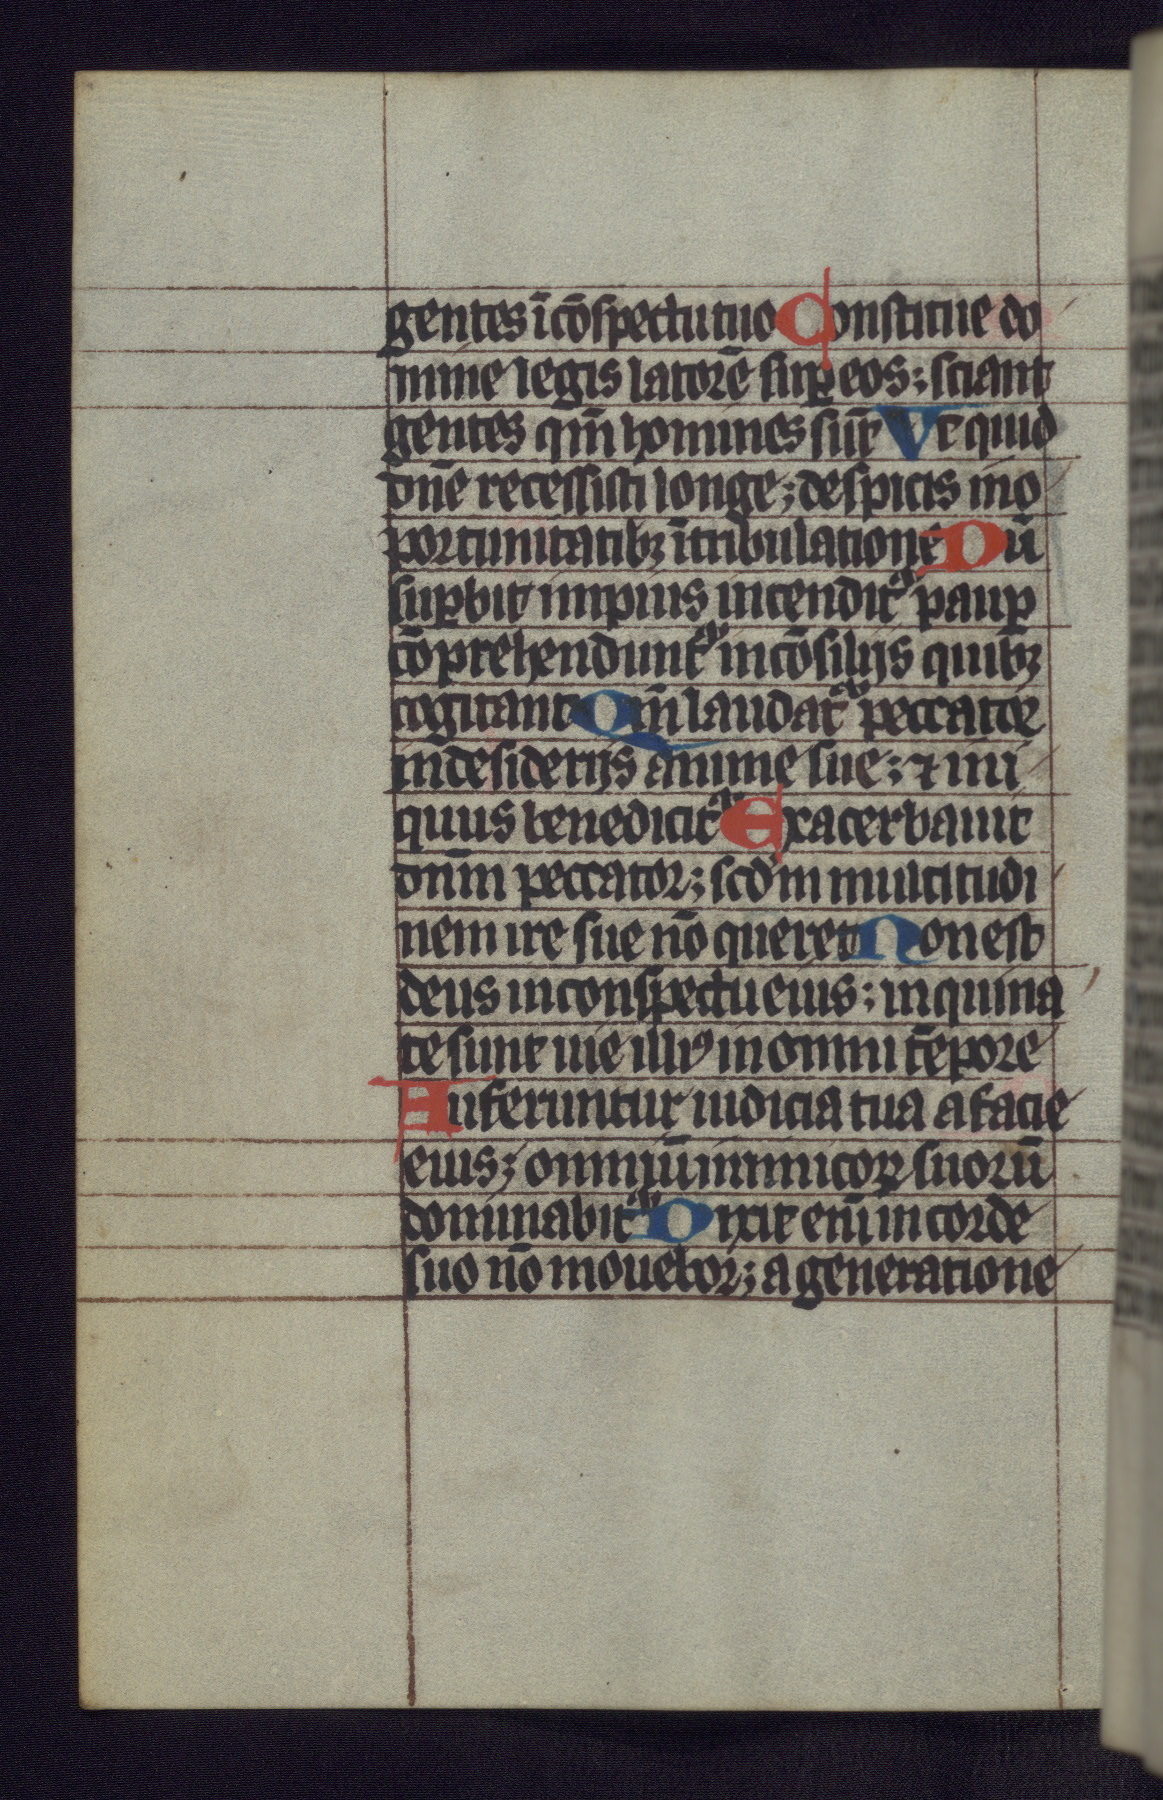 gentes ī cōspectu tuo Constitue do
mine legis latorē suꝑ eos; sciant
gentes qm̄ homines sūt Vt quid
dn̄e recessisti longe; despicis in o
portunitatibꝫ ī tribulatione Dū
suꝑbit impius incenditᷣ pauꝑ
cōprehenduntᷣ in cōsilijs quibꝫ
cogitant Qm̄ laudatᷣ peccator
in desiderijs anime sue; ⁊ ini
quus benedicitᷣ Exacerbauit
dn̄m peccator; scd̄m multitudi
nem ire sue nō queret Non est
deus in conspectu eius; inquina
te sunt uie illiꝰ in omni tēpore
Auferuntur iudicia tua a facie
eius; omniū inimicoꝝ suorū
dominabitᷣ Dixit eni̅ in corde
suo nō mouebor; a generatione